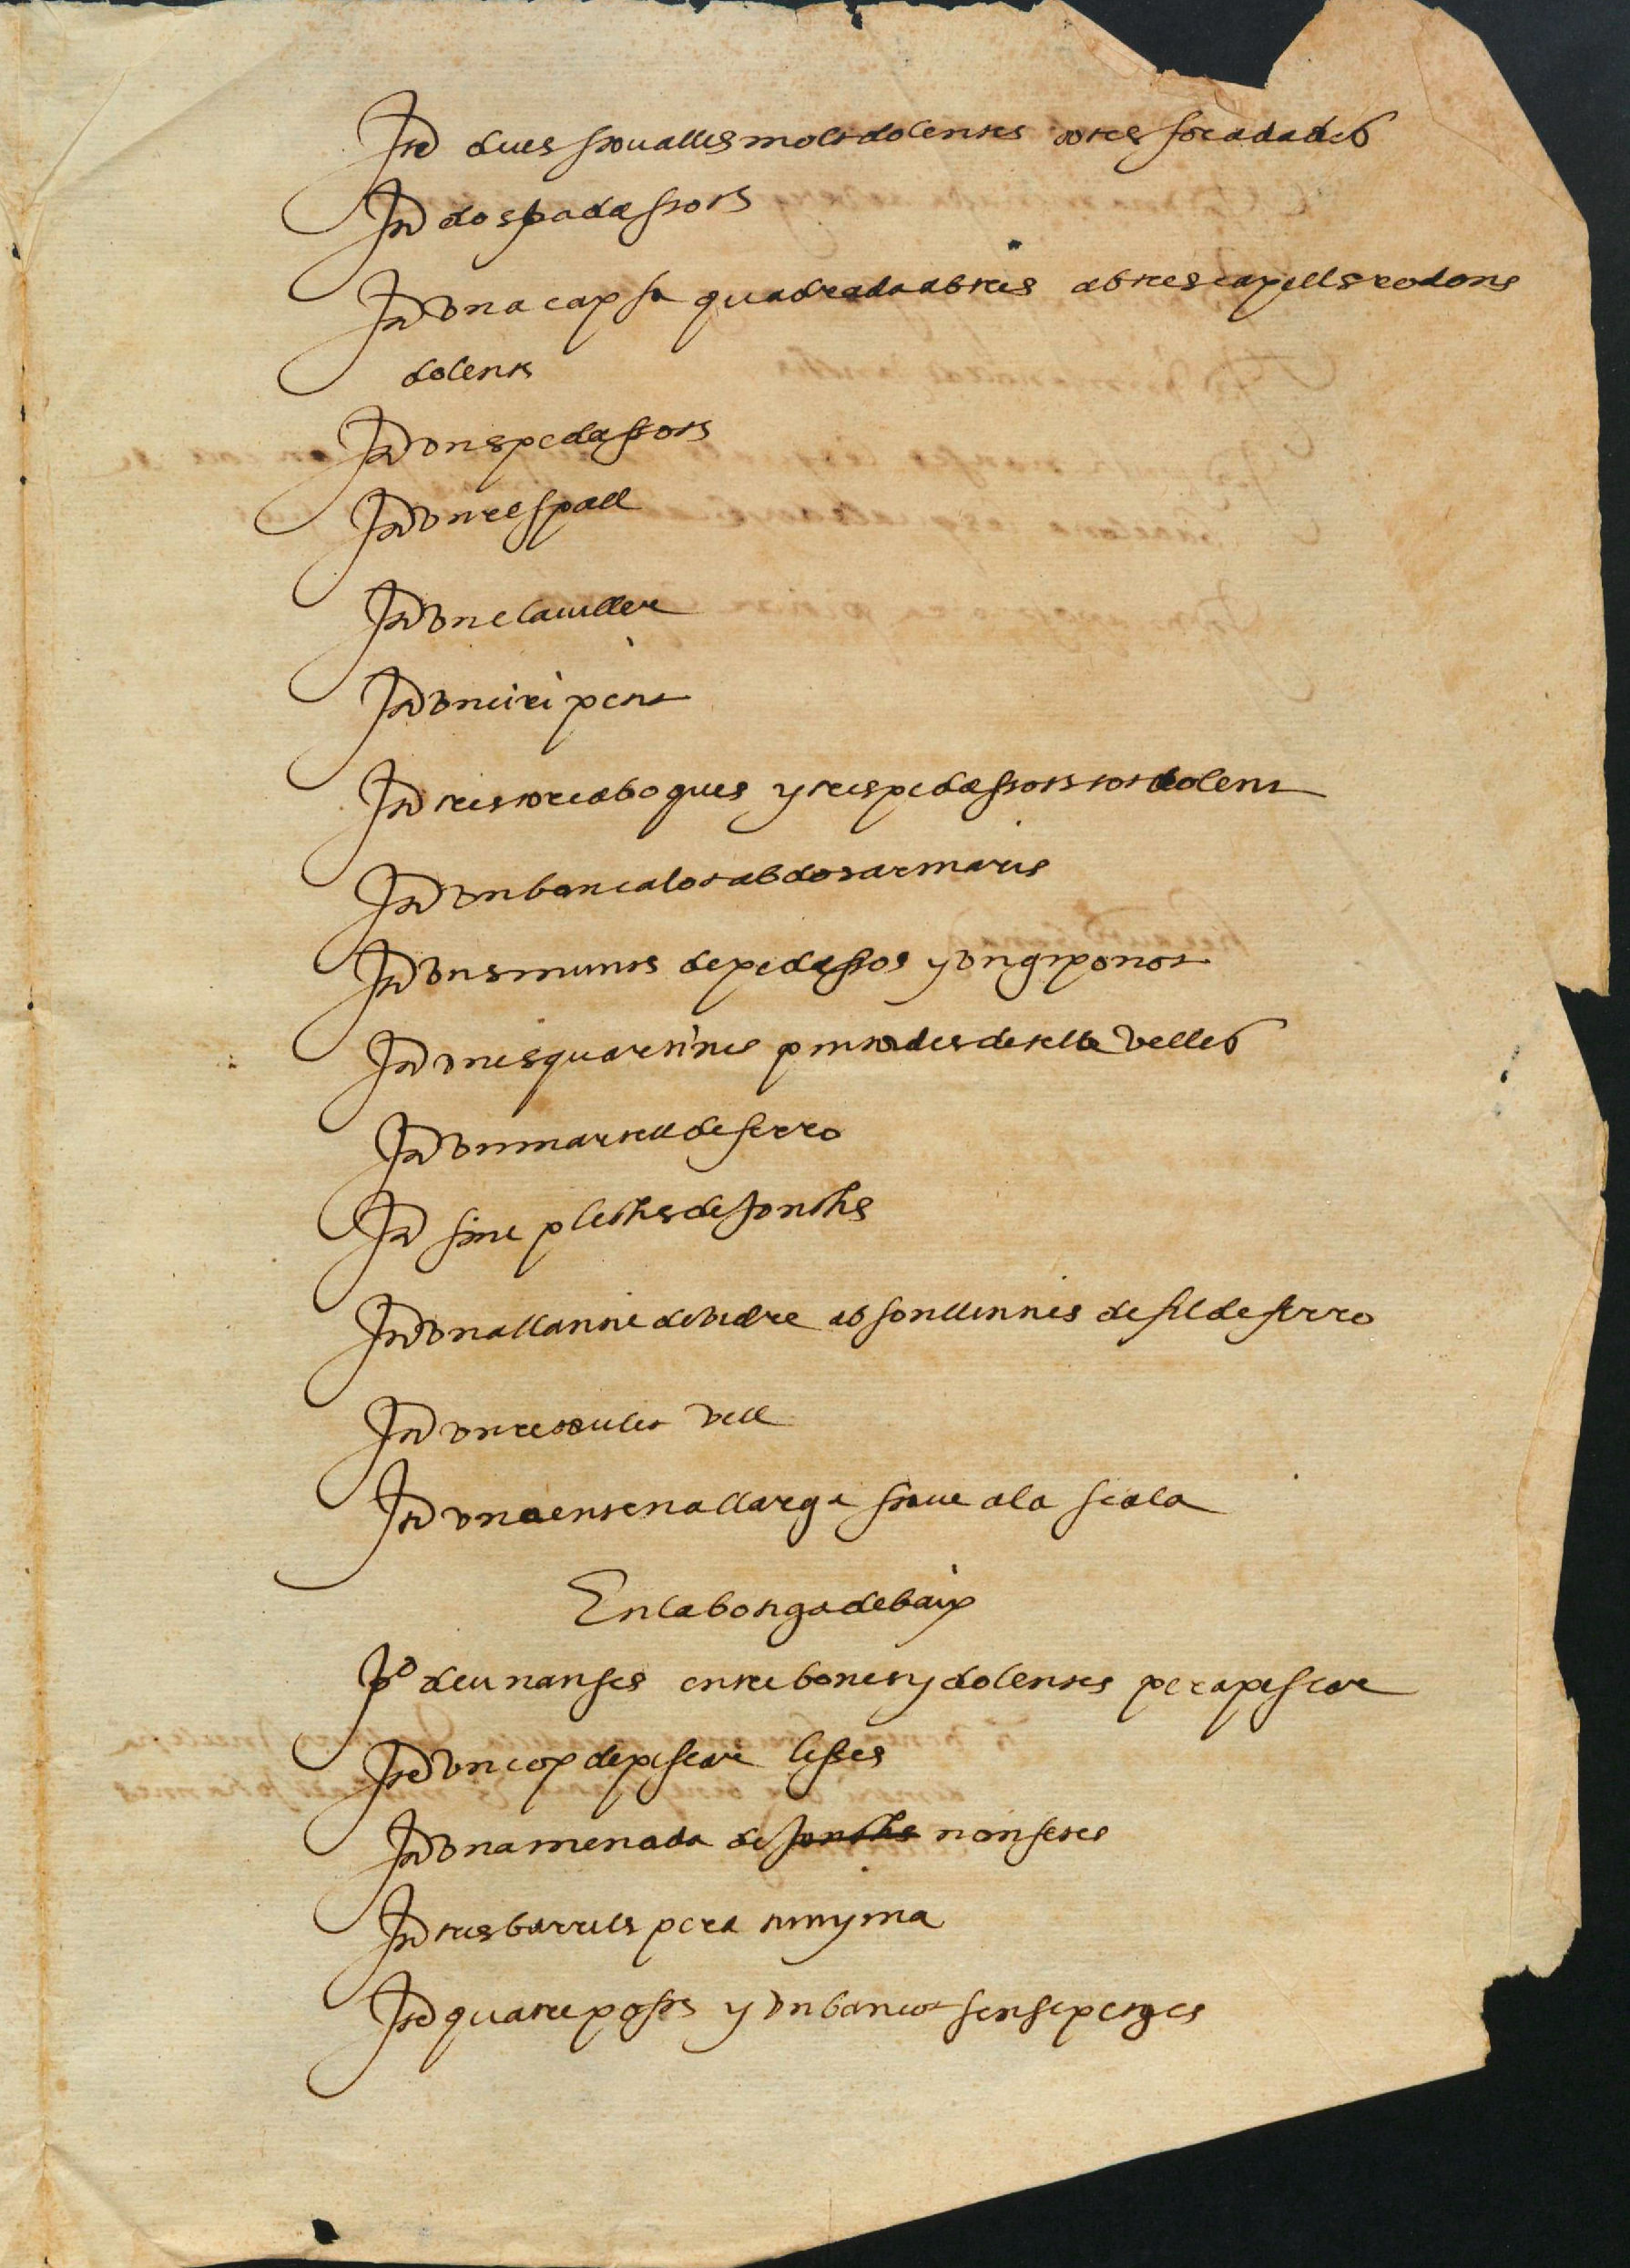 Itt dues stoualles molt dolentes totes foradades
Itt dos padassots
Itt vna capsa quadrada ab tres capells redons
dolents
Itt vns pedassots
Itt vn respall
Itt vn clauiller
Itt vn ciri pent
Itt tres toreaboques y tres pedassots tot dolent
Itt vn bancalot ab dos armaris
Itt vns munts de pedassos y vn giponot
Itt vnes quortines pintades de tella velles
Itt vn martell de ferro
Itt sinc plechs de jonchs
Itt vna llantie de vidre ab son llennes de fil de ferro
Itt vn tetaulet vell
Itt vna entena llarga stave a la scala
En la botiga de baix
Po deu nanses entre bones y dolentes per a pescar
Itt vn cop de pescar lisses
Itt vna menada de jonchs nanseres
Itt tres barrils per a tunyina
Itt quatre posts y vn bancot sense petges